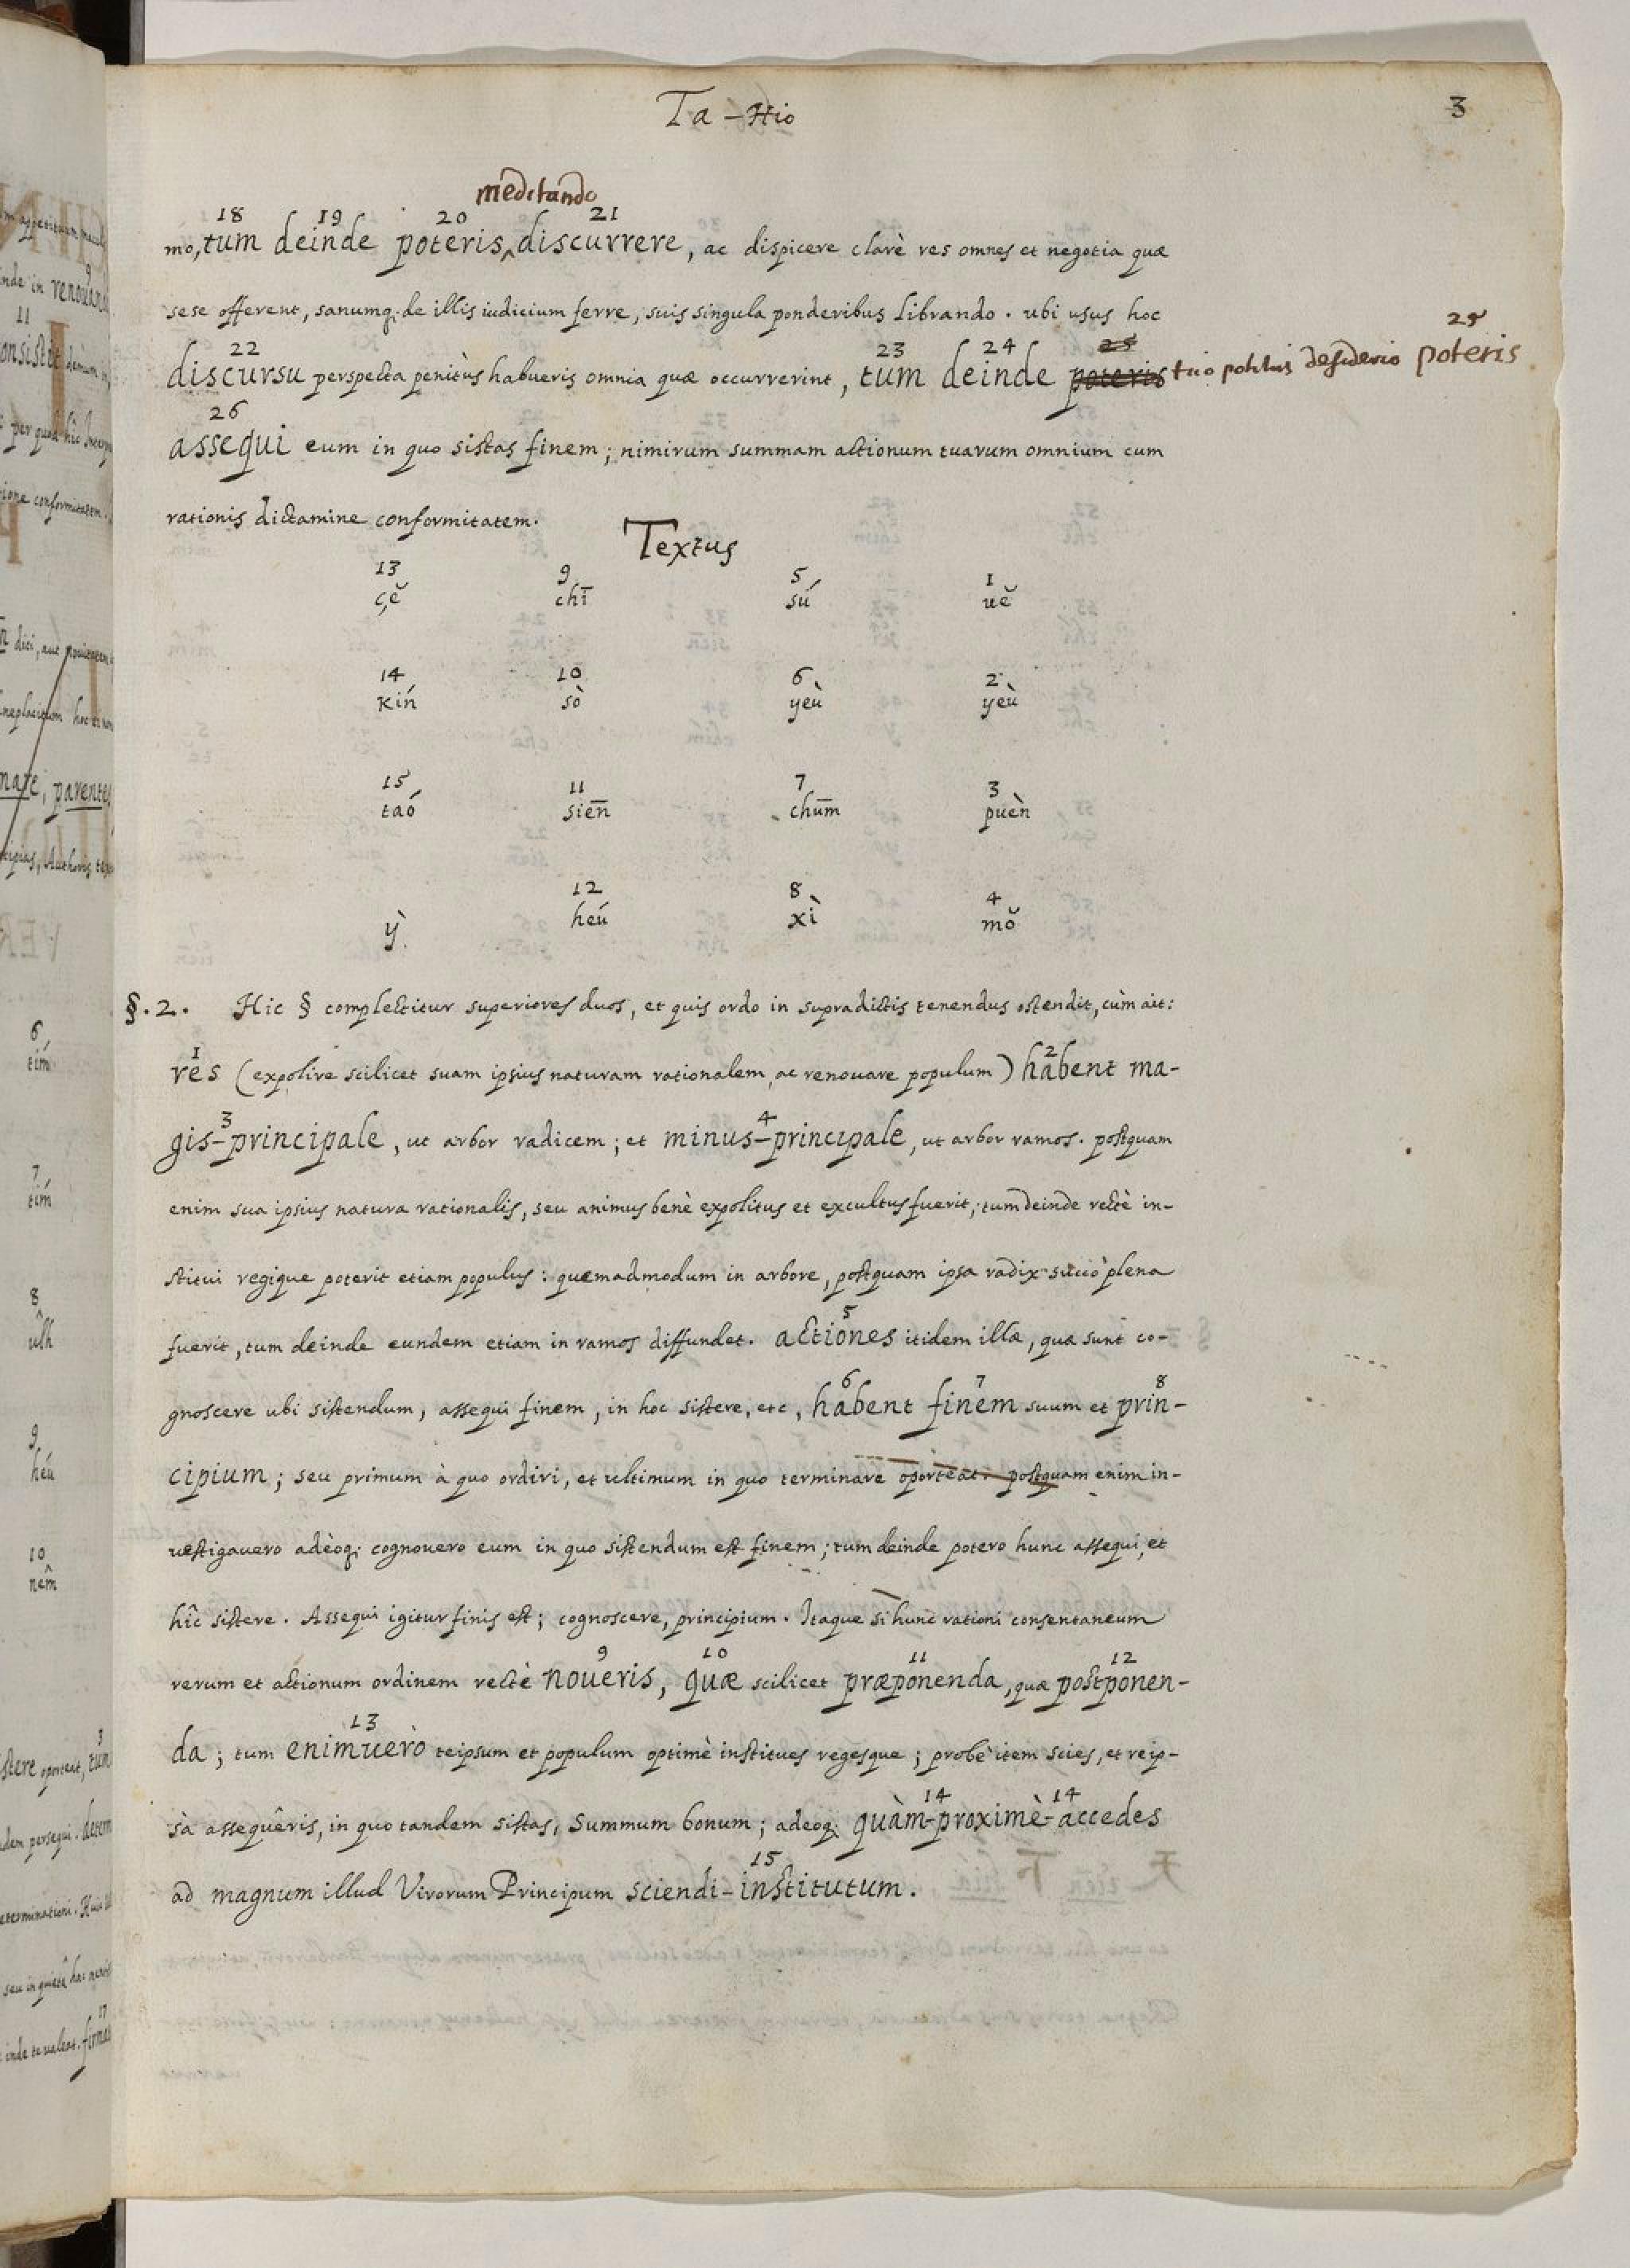 Ta-Hio
3
meditando
18 19 20 21
mo, tum deinde poteris ‸ discurrere, ac dispicere clarè res omnes et negotia quæ
sese offerent, sanumq; de illis iudicium ferre, suis singula ponderibus librando. ubi usus hoc
22 23 24 25 25
discursu perspecta penitùs habueris omnia quæ occurrerint, tum deinde poteris tuo potitus desiderio poteris
26
assequi eum in quo sistas finem; nimirum summam actionum tuarum omnium cum
rationis dictamine conformitatem.
Textus
13 9 5 1
çĕ chī sú uĕ
14 10 6 2
kín sò yeù yeù
15 11 7 3
taó siēn chūm puèn
12 8 4
ỳ. heú xì mŏ
§.2. Hic § complectitur superiores duos, et quis ordo in supradictis tenendus ostendit, cùm ait:
1 2
res (expolire scilicet suam ipsius naturam rationalem, ac renouare populum) habent ma-
3 4
gis-principale, ut arbor radicem; et minus-principale, ut arbor ramos. postquam
enim sua ipsius natura rationalis, seu animus benè expolitus et excultus fuerit, tum deinde rectè in-
stitui regique poterit etiam populus: quemadmodum in arbore, postquam ipsa radix succo plena
5
fuerit, tum deinde eundem etiam in ramos diffundet. actiones itidem illæ, quæ sunt co-
6 7 8
gnoscere ubi sistendum, assequi finem, in hoc sistere, etc, habent finem suum et prin-
cipium; seu primum à quo ordiri, et ultimum in quo terminare oporteat. postquam enim in-
uestigauero adèoq; cognouero eum in quo sistendum est finem; tum deinde potero hunc assequi, et
hîc sistere. Assequi igitur finis est; cognoscere, principium. Itaque si hunc rationi consentaneum
9 10 11 12
rerum et actionum ordinem rectè noueris, quæ scilicet præponenda, quæ postponen-
13
da; tum enimuerò teipsum et populum optimè institues regesque; probè item scies, et reip-
14 14
sà assequêris, in quo tandem sistas, summum bonum; adeoq; quàm-proximè-accedes
15
ad magnum illud Virorum Principum sciendi-institutum.